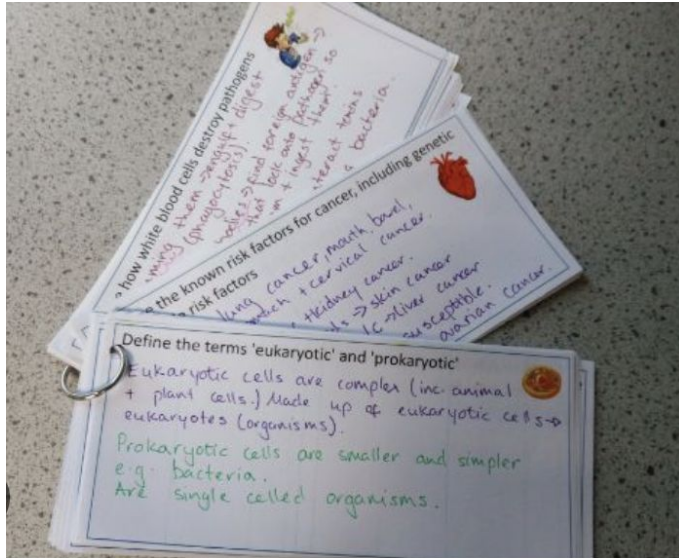 how white blood cells destroy pathogens
ming them → engulf + digest
(phagocytosis).
bodies → find foreign antigen →
that lock onto pathogen so
m + ingest them.
teract toxins
bacteria.
the known risk factors for cancer, including genetic
risk factors
lung cancer, mouth, bowel,
ach + cervical cancer.
+ kidney cancer.
ds → skin cancer
C → liver cancer
susceptible.
ovarian cancer.
Define the terms 'eukaryotic' and 'prokaryotic'
Eukaryotic cells are complex (inc. animal
+ plant cells.) Made up of eukaryotic cells →
eukaryotes (organisms).
Prokaryotic cells are smaller and simpler
e.g. bacteria.
Are single celled organisms.